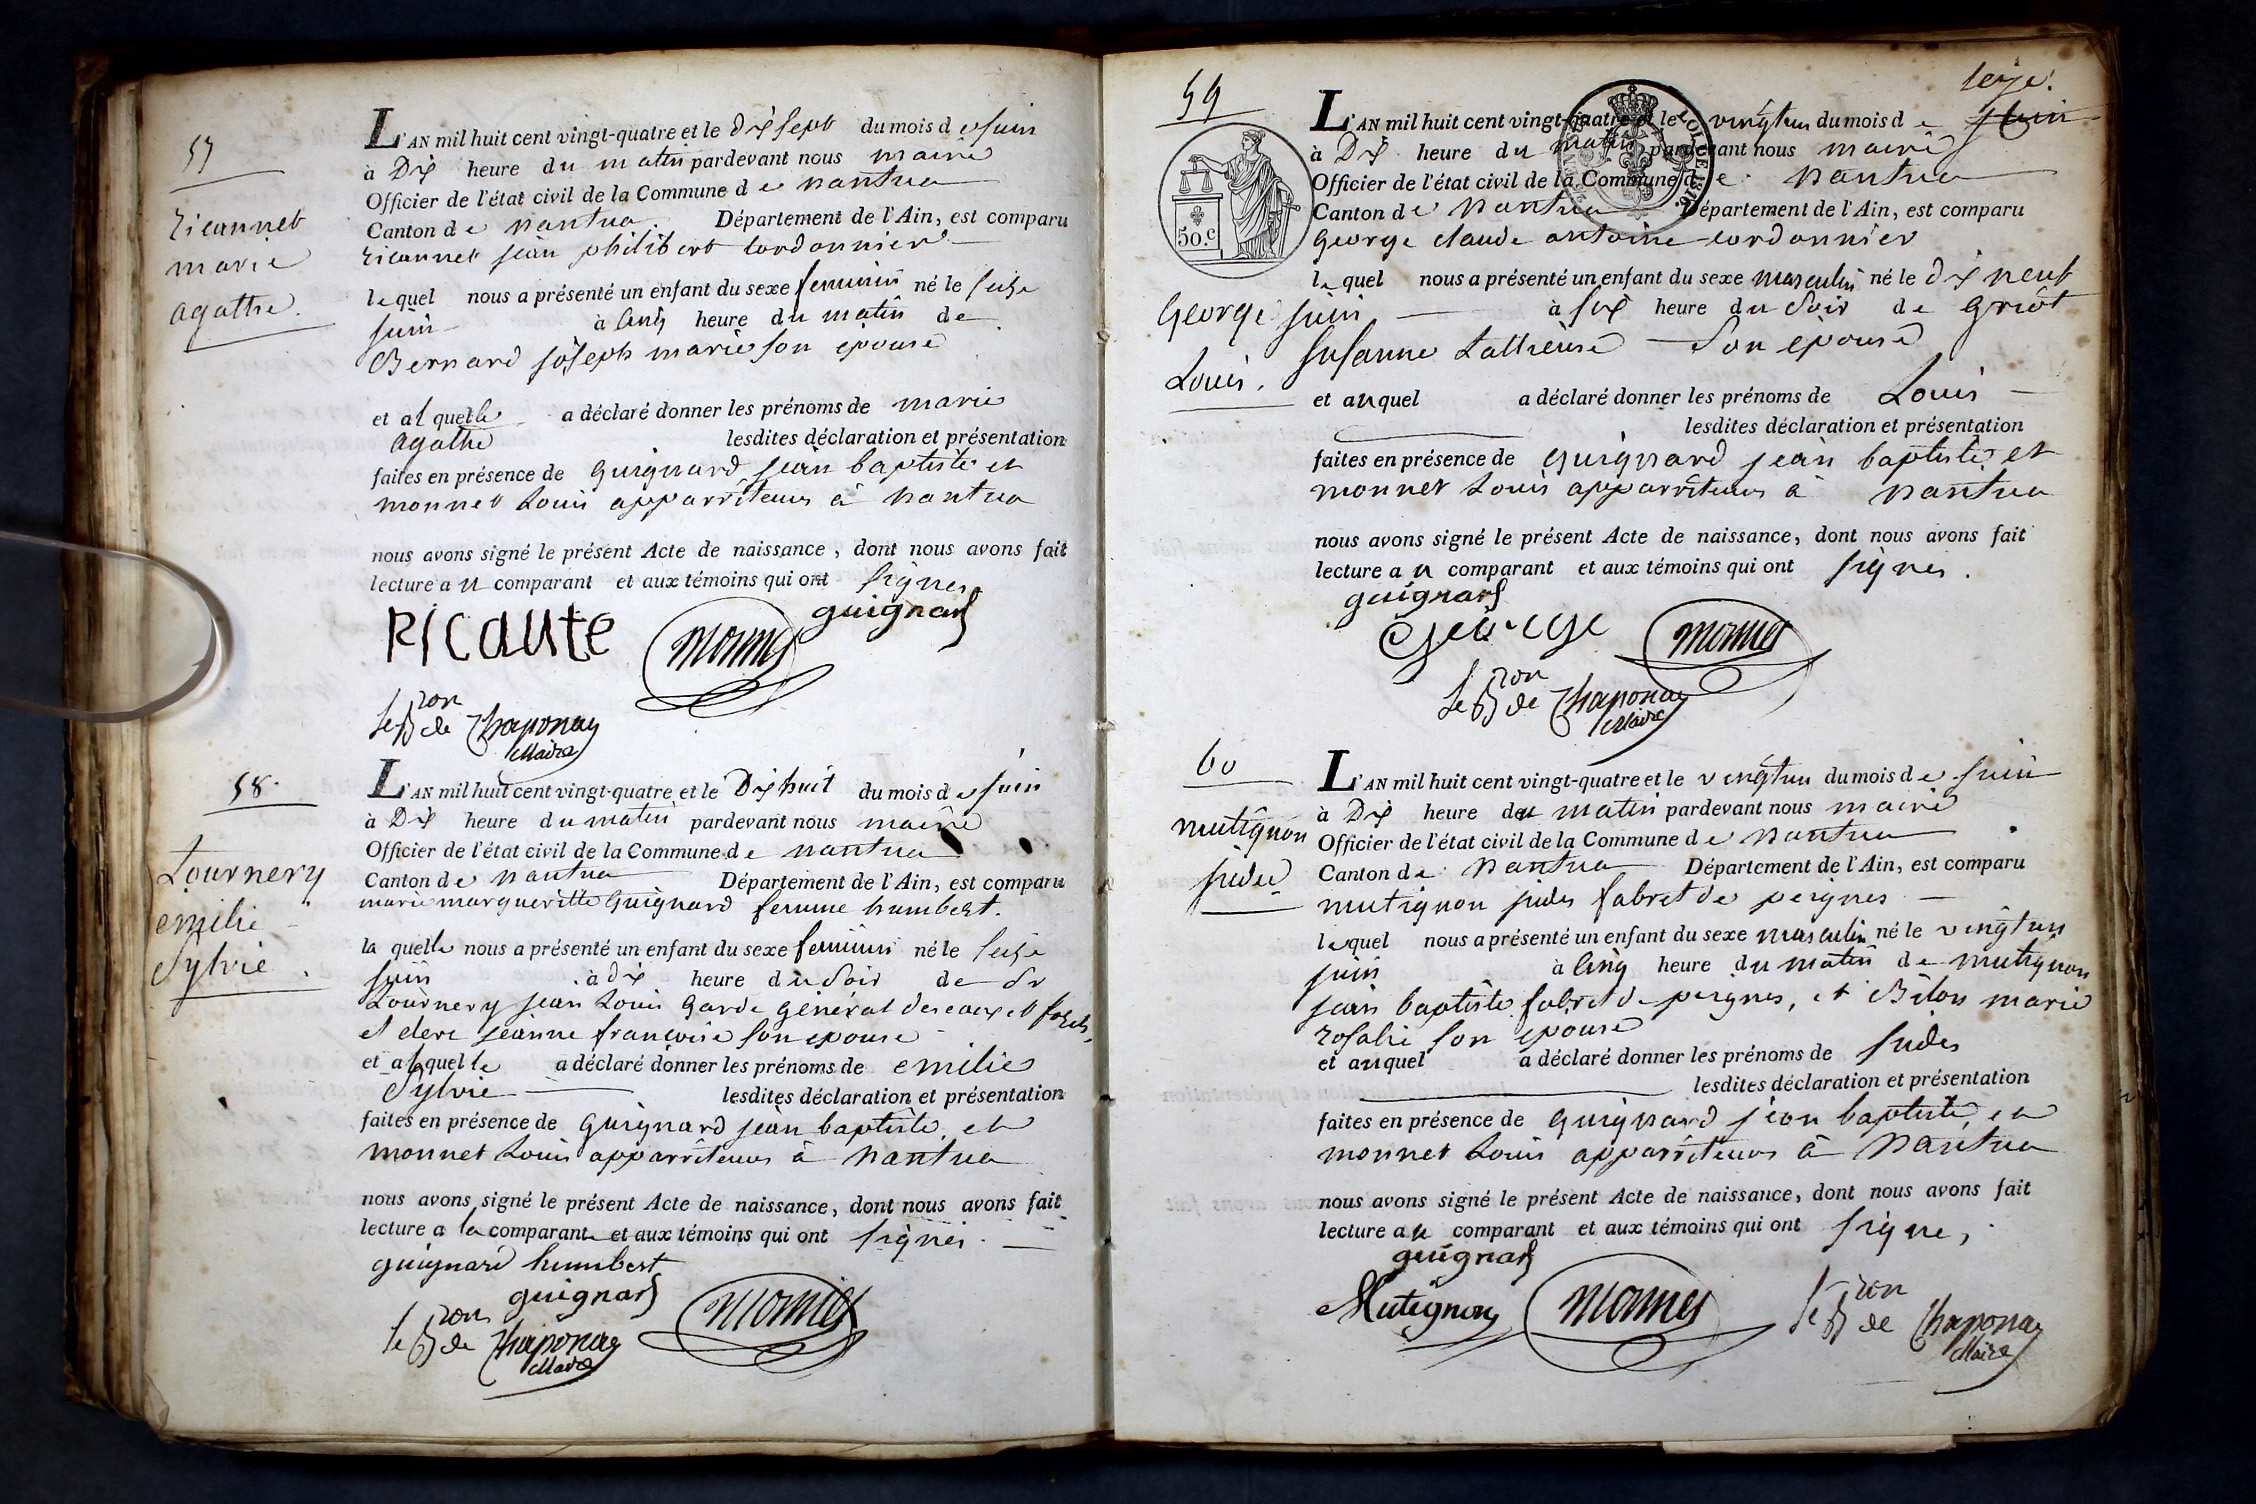 57
ricannet
marie
agathe.
L'AN mil huit cent vingt-quatre et le dix sept du mois de juin
à Dix heure du matin pardevant nous maire
Officier de l'état civil de la Commune de nantua
Canton de nantua Département de l'Ain, est comparu
ricannet jean philibert cordonnier
lequel nous a présenté un enfant du sexe feminin né le seize
juin à cinq heure du matin de
Bernard joseph marie son epouse
et alquelle a déclaré donner les prénoms de marie
agathe lesdites déclaration et présentation
faites en présence de guignard jean baptiste et
monnet Louis apparriteurs à nantua
nous avons signé le présent Acte de naissance, dont nous avons fait
lecture au comparant et aux témoins qui ont signes
Ricaute monnet guignard
le Bron de Chaponay
Maire
58.
Tournery
emilie
Sylvie.
L'AN mil huit cent vingt-quatre et le Dix huit du mois de juin
à Dix heure du matin pardevant nous maire
Officier de l'état civil de la Commune de nantua
Canton de nantua Département de l'Ain, est comparu
marie margueritte Guignard femme humbert.
la quelle nous a présenté un enfant du sexe feminin né le seize
juin à dix heure du Soir de Sr
Tournery jean Louis Garde général des eaux et forets
et clerc jeanne francoise son epouse
et alquelle a déclaré donner les prénoms de emilie
Sylvie lesdites déclaration et présentation
faites en présence de guignard jean baptiste, et
monnet Louis apparriteurs à nantua
nous avons signé le présent Acte de naissance, dont nous avons fait
lecture a la comparante et aux témoins qui ont signes.
guignard humbert
guignard monnet
le Bron de Chaponay
Maire
seize.
59
50.c
George
Louis.
L'AN mil huit cent vingt-quatre et le vingtun du mois de juin
à Dix heure du matin pardevant nous maire
Officier de l'état civil de la Commune de nantua
Canton de nantua Département de l'Ain, est comparu
George claude antoine cordonnier
lequel nous a présenté un enfant du sexe masculin né le dix neuf
juin à six heure du Soir de Griot
Susanne Son epouse
et auquel a déclaré donner les prénoms de Louis
lesdites déclaration et présentation
faites en présence de guignard jean baptiste et
monnet Louis apparriteurs à nantua
nous avons signé le présent Acte de naissance, dont nous avons fait
lecture au comparant et aux témoins qui ont signes.
guignard
George monnet
le Bron de Chaponay
Maire
60
mutignon
judes
L'AN mil huit cent vingt-quatre et le vingtun du mois de juin
à Dix heure du matin pardevant nous maire
Officier de l'état civil de la Commune de nantua
Canton de nantua Département de l'Ain, est comparu
mutignon judes fabret de peignes
lequel nous a présenté un enfant du sexe masculin né le vingtun
juin à cinq heure du matin de mutignon
jean baptiste fabret de peignes, et Bilon marie
rosalie son epouse
et auquel a déclaré donner les prénoms de judes
lesdites déclaration et présentation
faites en présence de guignard jean baptiste, et
monnet Louis apparriteurs à nantua
nous avons signé le présent Acte de naissance, dont nous avons fait
lecture au comparant et aux témoins qui ont signe,
guignard
Mutignon monnet le Bron de Chaponay
Maire